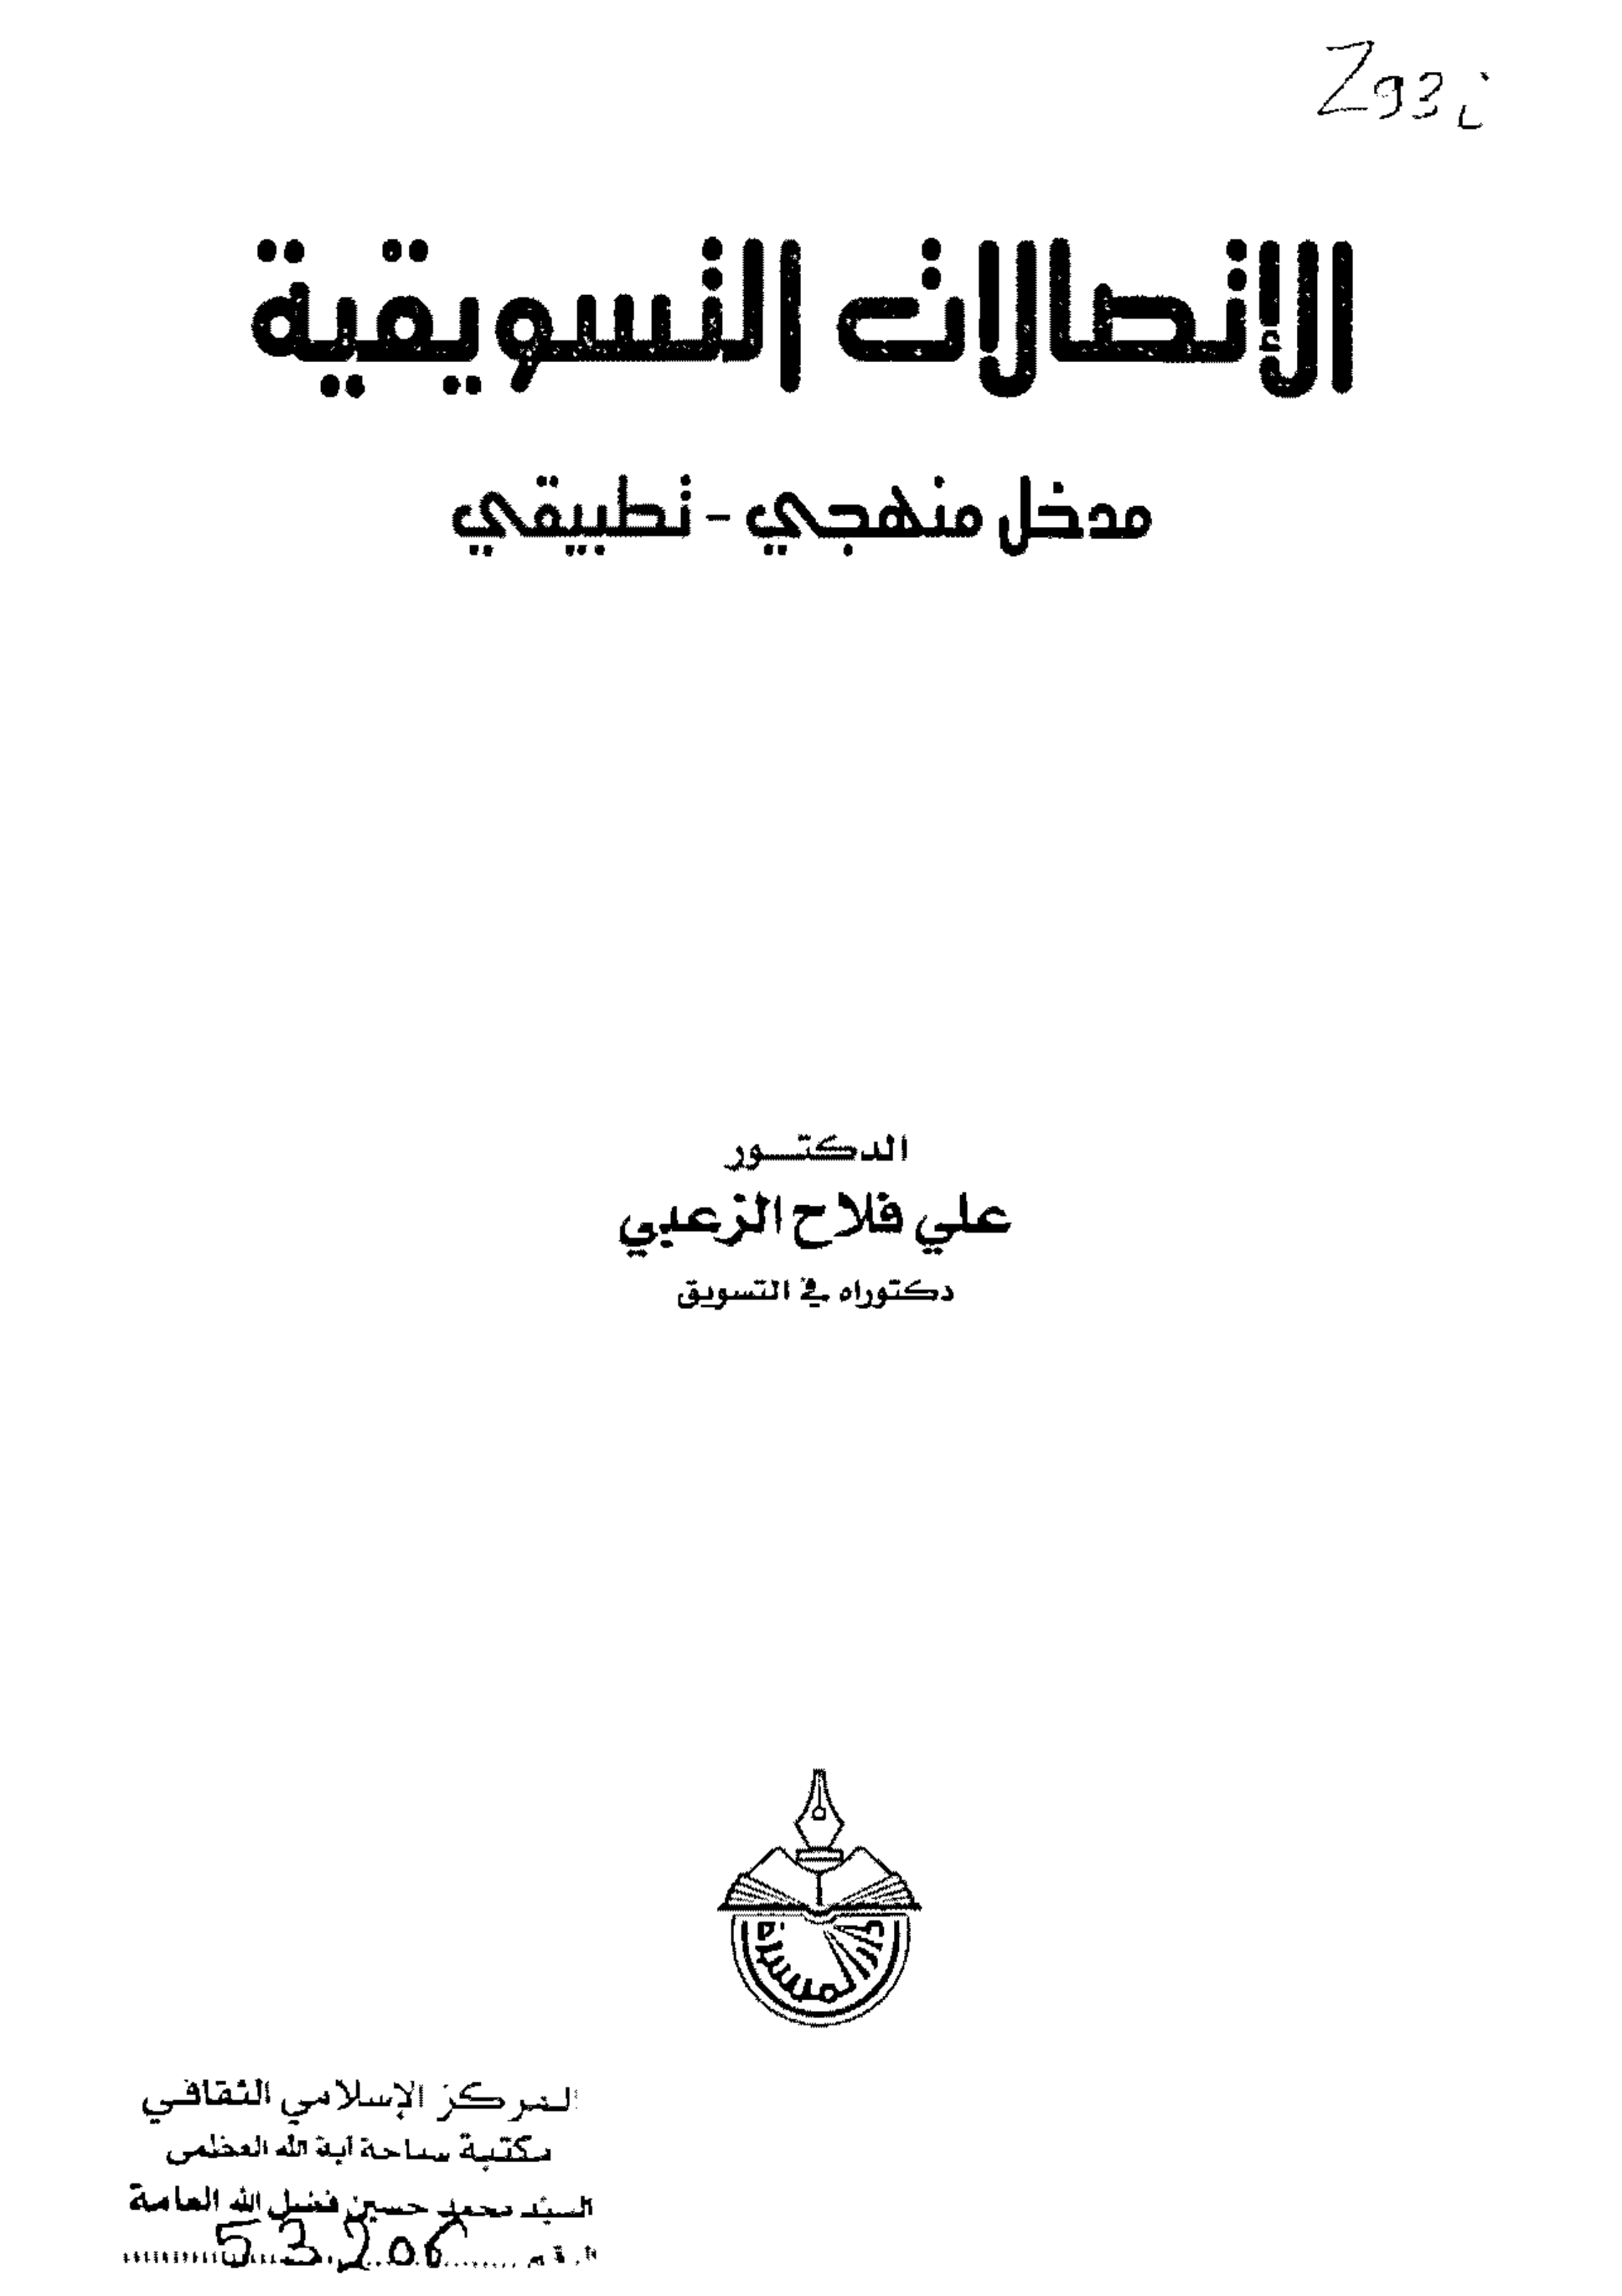 Z93i
الإتصالات التسويقية
مدخل منهجي - تطبيقي
الدكتـــور
علي فلاح الزعبي
دكتوراه في التسويق
دار المسيرة
المركز الإسلامي الثقافي
مكتبة سماحة آية الله العظمى
السيد محمد حسين فضل الله العامة
الرقم 53206